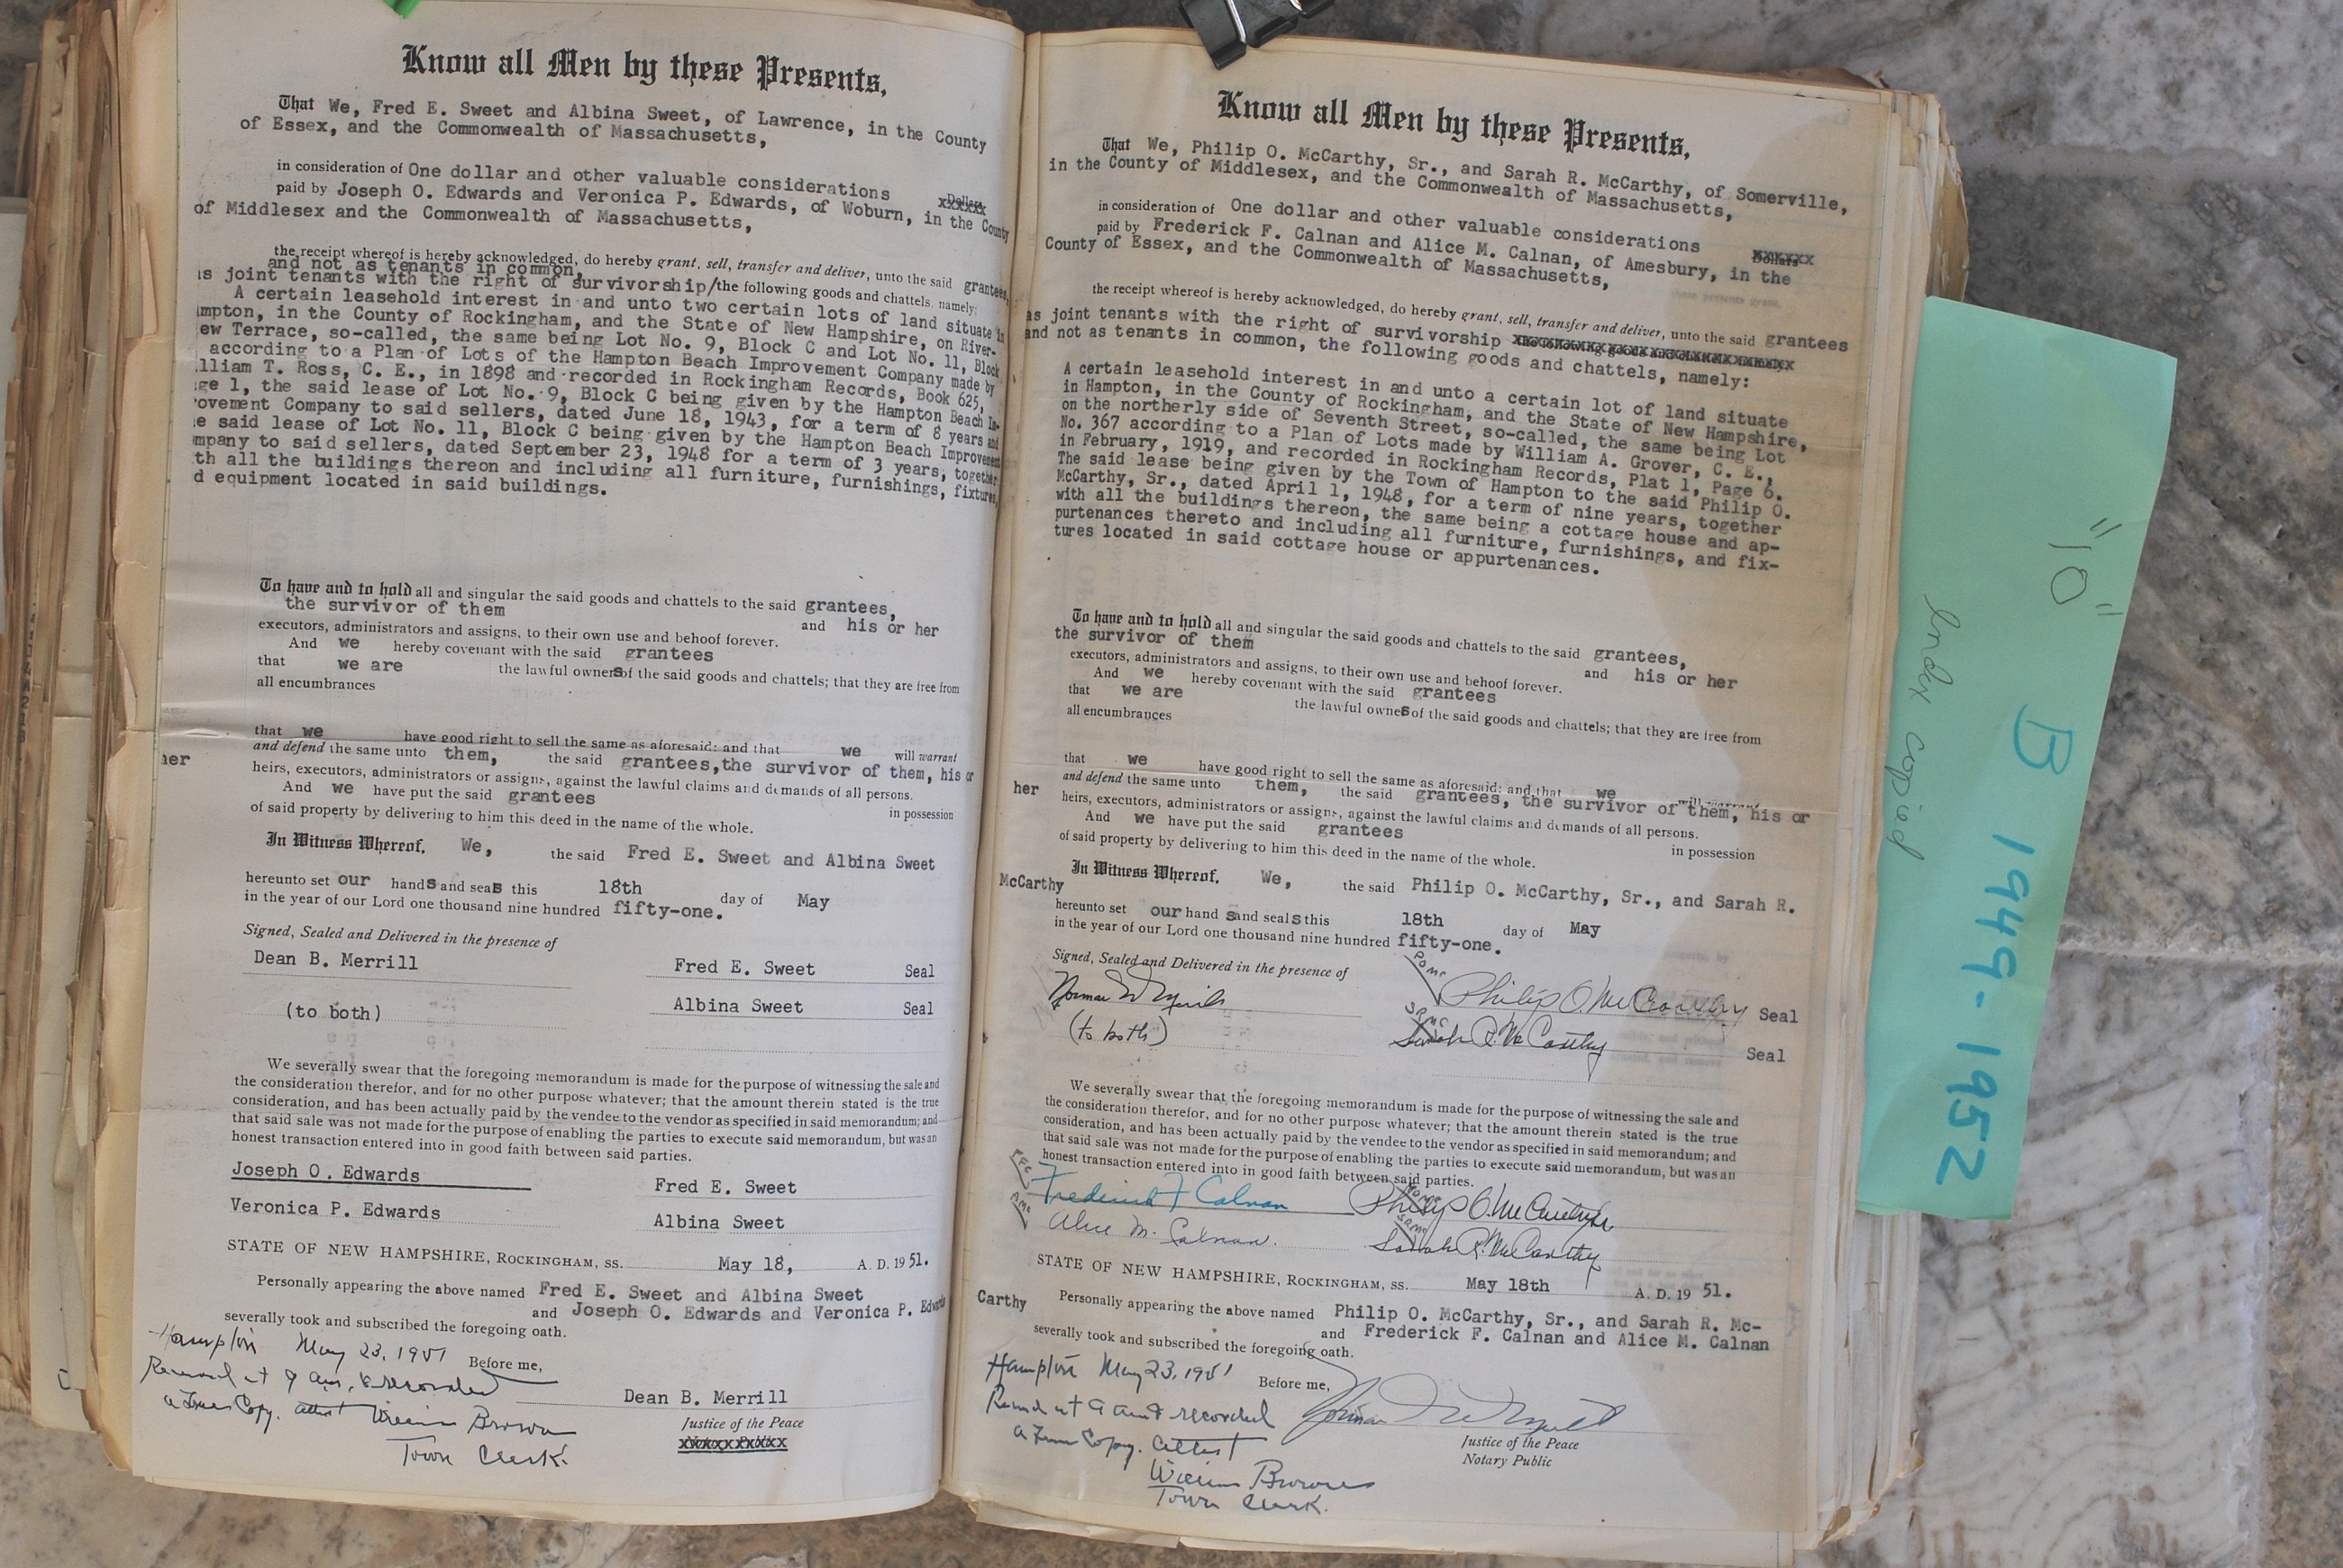 Know all Men by these Presents,
That We, Fred E. Sweet and Albina Sweet, of Lawrence, in the County
of Essex, and the Commonwealth of Massachusetts,
in consideration of One dollar and other valuable considerations
paid by Joseph O. Edwards and Veronica P. Edwards, of Woburn, in the County
of Middlesex and the Commonwealth of Massachusetts,
the receipt whereof is hereby acknowledged, do hereby grant, sell, transfer and deliver, unto the said grantees,
and not as tenants in common,
as joint tenants with the right of survivorship/the following goods and chattels, namely:
A certain leasehold interest in and unto two certain lots of land situate in
ampton, in the County of Rockingham, and the State of New Hampshire, on River-
ew Terrace, so-called, the same being Lot No. 9, Block C and Lot No. 11, Block
according to a Plan of Lots of the Hampton Beach Improvement Company made by
lliam T. Ross, C. E., in 1898 and recorded in Rockingham Records, Book 625,
ge 1, the said lease of Lot No. 9, Block C being given by the Hampton Beach Im-
rovement Company to said sellers, dated June 18, 1943, for a term of 8 years and
e said lease of Lot No. 11, Block C being given by the Hampton Beach Improvement
mpany to said sellers, dated September 23, 1948 for a term of 3 years, together
th all the buildings thereon and including all furniture, furnishings, fixtures,
d equipment located in said buildings.
To have and to hold all and singular the said goods and chattels to the said grantees,
the survivor of them and his or her
executors, administrators and assigns, to their own use and behoof forever.
And we hereby covenant with the said grantees
that we are the lawful owners of the said goods and chattels; that they are free from
all encumbrances
that we have good right to sell the same as aforesaid: and that we will warrant
and defend the same unto them, the said grantees,the survivor of them, his or
her heirs, executors, administrators or assigns, against the lawful claims and demands of all persons.
And we have put the said grantees in possession
of said property by delivering to him this deed in the name of the whole.
In Witness Whereof, We, the said Fred E. Sweet and Albina Sweet
hereunto set our hands and seals this 18th day of May
in the year of our Lord one thousand nine hundred fifty-one.
Signed, Sealed and Delivered in the presence of
Dean B. Merrill Fred E. Sweet Seal
(to both) Albina Sweet Seal
We severally swear that the foregoing memorandum is made for the purpose of witnessing the sale and
the consideration therefor, and for no other purpose whatever; that the amount therein stated is the true
consideration, and has been actually paid by the vendee to the vendor as specified in said memorandum; and
that said sale was not made for the purpose of enabling the parties to execute said memorandum, but was an
honest transaction entered into in good faith between said parties.
Joseph O. Edwards Fred E. Sweet
Veronica P. Edwards Albina Sweet
STATE OF NEW HAMPSHIRE, ROCKINGHAM, SS. May 18, A. D. 1951.
Personally appearing the above named Fred E. Sweet and Albina Sweet
and Joseph O. Edwards and Veronica P. Edwards
severally took and subscribed the foregoing oath.
Hampton May 23, 1951 Before me,
Received at 9 am, & recorded
Dean B. Merrill
a True Copy. attest William Brown
Justice of the Peace
Town Clerk.
Know all Men by these Presents,
That We, Philip O. McCarthy, Sr., and Sarah R. McCarthy, of Somerville,
in the County of Middlesex, and the Commonwealth of Massachusetts,
in consideration of One dollar and other valuable considerations
paid by Frederick F. Calnan and Alice M. Calnan, of Amesbury, in the
County of Essex, and the Commonwealth of Massachusetts,
the receipt whereof is hereby acknowledged, do hereby grant, sell, transfer and deliver, unto the said grantees
as joint tenants with the right of survivorship
and not as tenants in common, the following goods and chattels, namely:
A certain leasehold interest in and unto a certain lot of land situate
in Hampton, in the County of Rockingham, and the State of New Hampshire,
on the northerly side of Seventh Street, so-called, the same being Lot
No. 367 according to a Plan of Lots made by William A. Grover, C. E.,
in February, 1919, and recorded in Rockingham Records, Plat 1, Page 6.
The said lease being given by the Town of Hampton to the said Philip O.
McCarthy, Sr., dated April 1, 1948, for a term of nine years, together
with all the buildings thereon, the same being a cottage house and ap-
purtenances thereto and including all furniture, furnishings, and fix-
tures located in said cottage house or appurtenances.
To have and to hold all and singular the said goods and chattels to the said grantees,
the survivor of them and his or her
executors, administrators and assigns, to their own use and behoof forever.
And we hereby covenant with the said grantees
that we are the lawful owners of the said goods and chattels; that they are free from
all encumbrances
that we have good right to sell the same as aforesaid: and that we will warrant
and defend the same unto them, the said grantees, the survivor of them, his or
her heirs, executors, administrators or assigns, against the lawful claims and demands of all persons.
And we have put the said grantees in possession
of said property by delivering to him this deed in the name of the whole.
In Witness Whereof, We, the said Philip O. McCarthy, Sr., and Sarah R.
McCarthy
hereunto set our hands and seals this 18th day of May
in the year of our Lord one thousand nine hundred fifty-one.
Signed, Sealed and Delivered in the presence of
POMC
Philip O. McCarthy Seal
(to both) SRMC Sarah R. McCarthy Seal
We severally swear that the foregoing memorandum is made for the purpose of witnessing the sale and
the consideration therefor, and for no other purpose whatever; that the amount therein stated is the true
consideration, and has been actually paid by the vendee to the vendor as specified in said memorandum; and
that said sale was not made for the purpose of enabling the parties to execute said memorandum, but was an
honest transaction entered into in good faith between said parties.
FFC Frederick F Calnan Philip O. McCarthy
AMC Alice M. Calnan. SRMC Sarah R. McCarthy
STATE OF NEW HAMPSHIRE, ROCKINGHAM, SS. May 18th A. D. 19 51.
Personally appearing the above named Philip O. McCarthy, Sr., and Sarah R. Mc-
Carthy
and Frederick F. Calnan and Alice M. Calnan
severally took and subscribed the foregoing oath.
Hampton May 23, 1951 Before me,
Received at 9 am & recorded
a True Copy. attest
Justice of the Peace
Notary Public
William Brown
Town Clerk.
"10"
B 1949-1952
Index copied